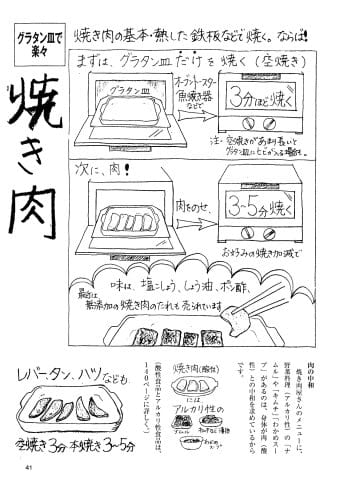 グラタン皿で
楽々
焼き肉
焼き肉の基本・熱した鉄板などで焼く。ならば!
まずは、グラタン皿だけを焼く(空焼き)
グラタン皿
オーブントースター
魚焼き器
などで
3分ほど焼く
注・空焼きがあまり長いと
グラタン皿にヒビが入る場合も。
次に、肉!
肉をのせ、
3~5分焼く
お好みの焼き加減で
味は、塩こしょう、しょう油、ポン酢、
最近は
無添加の焼き肉のたれも売られています
レバー・タン、ハツなども
空焼き3分 本焼き3~5分
焼き肉(酸性)
には
アルカリ性の
ナムル
キムチなど漬物
わかめの
スープ
肉の中和
焼き肉屋さんのメニューに、
野菜料理(アルカリ性)の「ナ
ムル」や「キムチ」「わかめスー
プ」があるのは、身体が肉(酸
性)との中和を求めているから
です。
(酸性食品とアルカリ性食品は、
140ページに詳しく。)
41